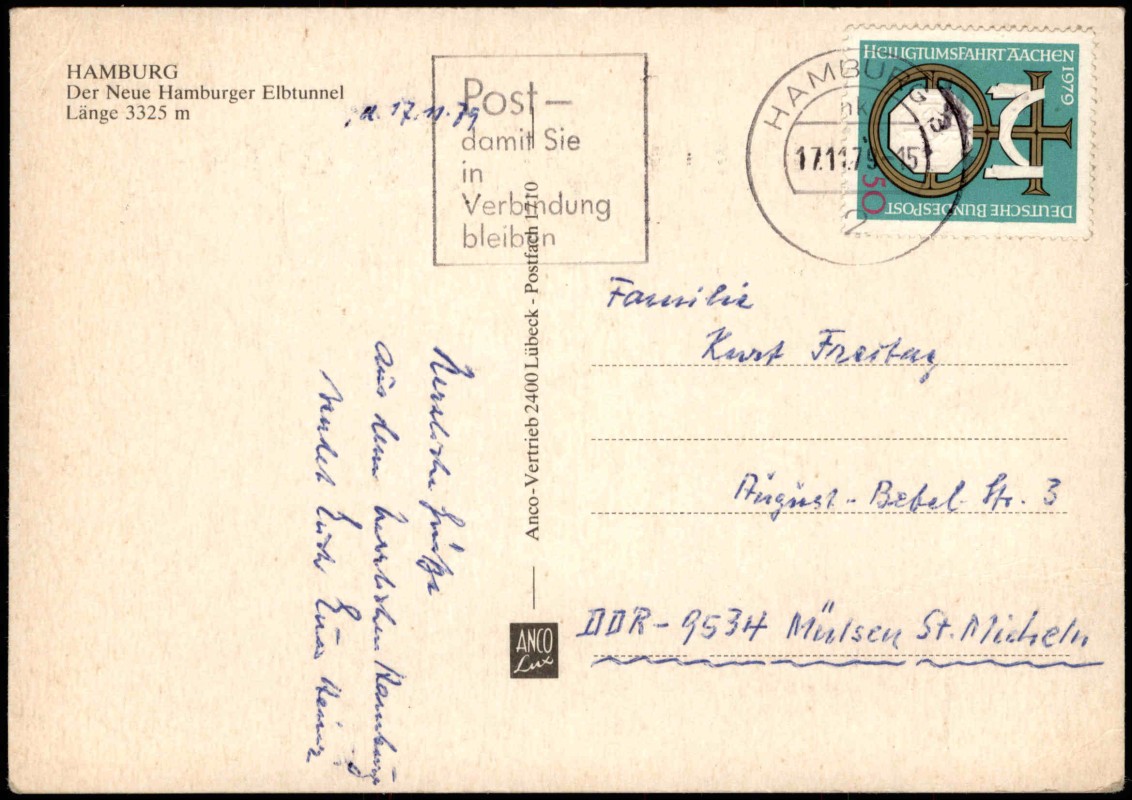 HAMBURG
Der Neue Hamburger Elbtunnel
Länge 3325 m
d. 17.11.79
Post –
damit Sie
in
Verbindung
bleiben
HAMBURG
17.11.79-15
HEILIGTUMSFAHRT AACHEN 1979
50
DEUTSCHE BUNDESPOST
Herzliche Grüße
aus dem herrlichen Hamburg
sendet Euch Euer Heinz
Anco-Vertrieb 2400 Lübeck - Postfach 1710
ANCO
Lux
Familie
Kurt Freitag
August-Bebel Str. 3
DDR-9534 Mülsen St. Micheln